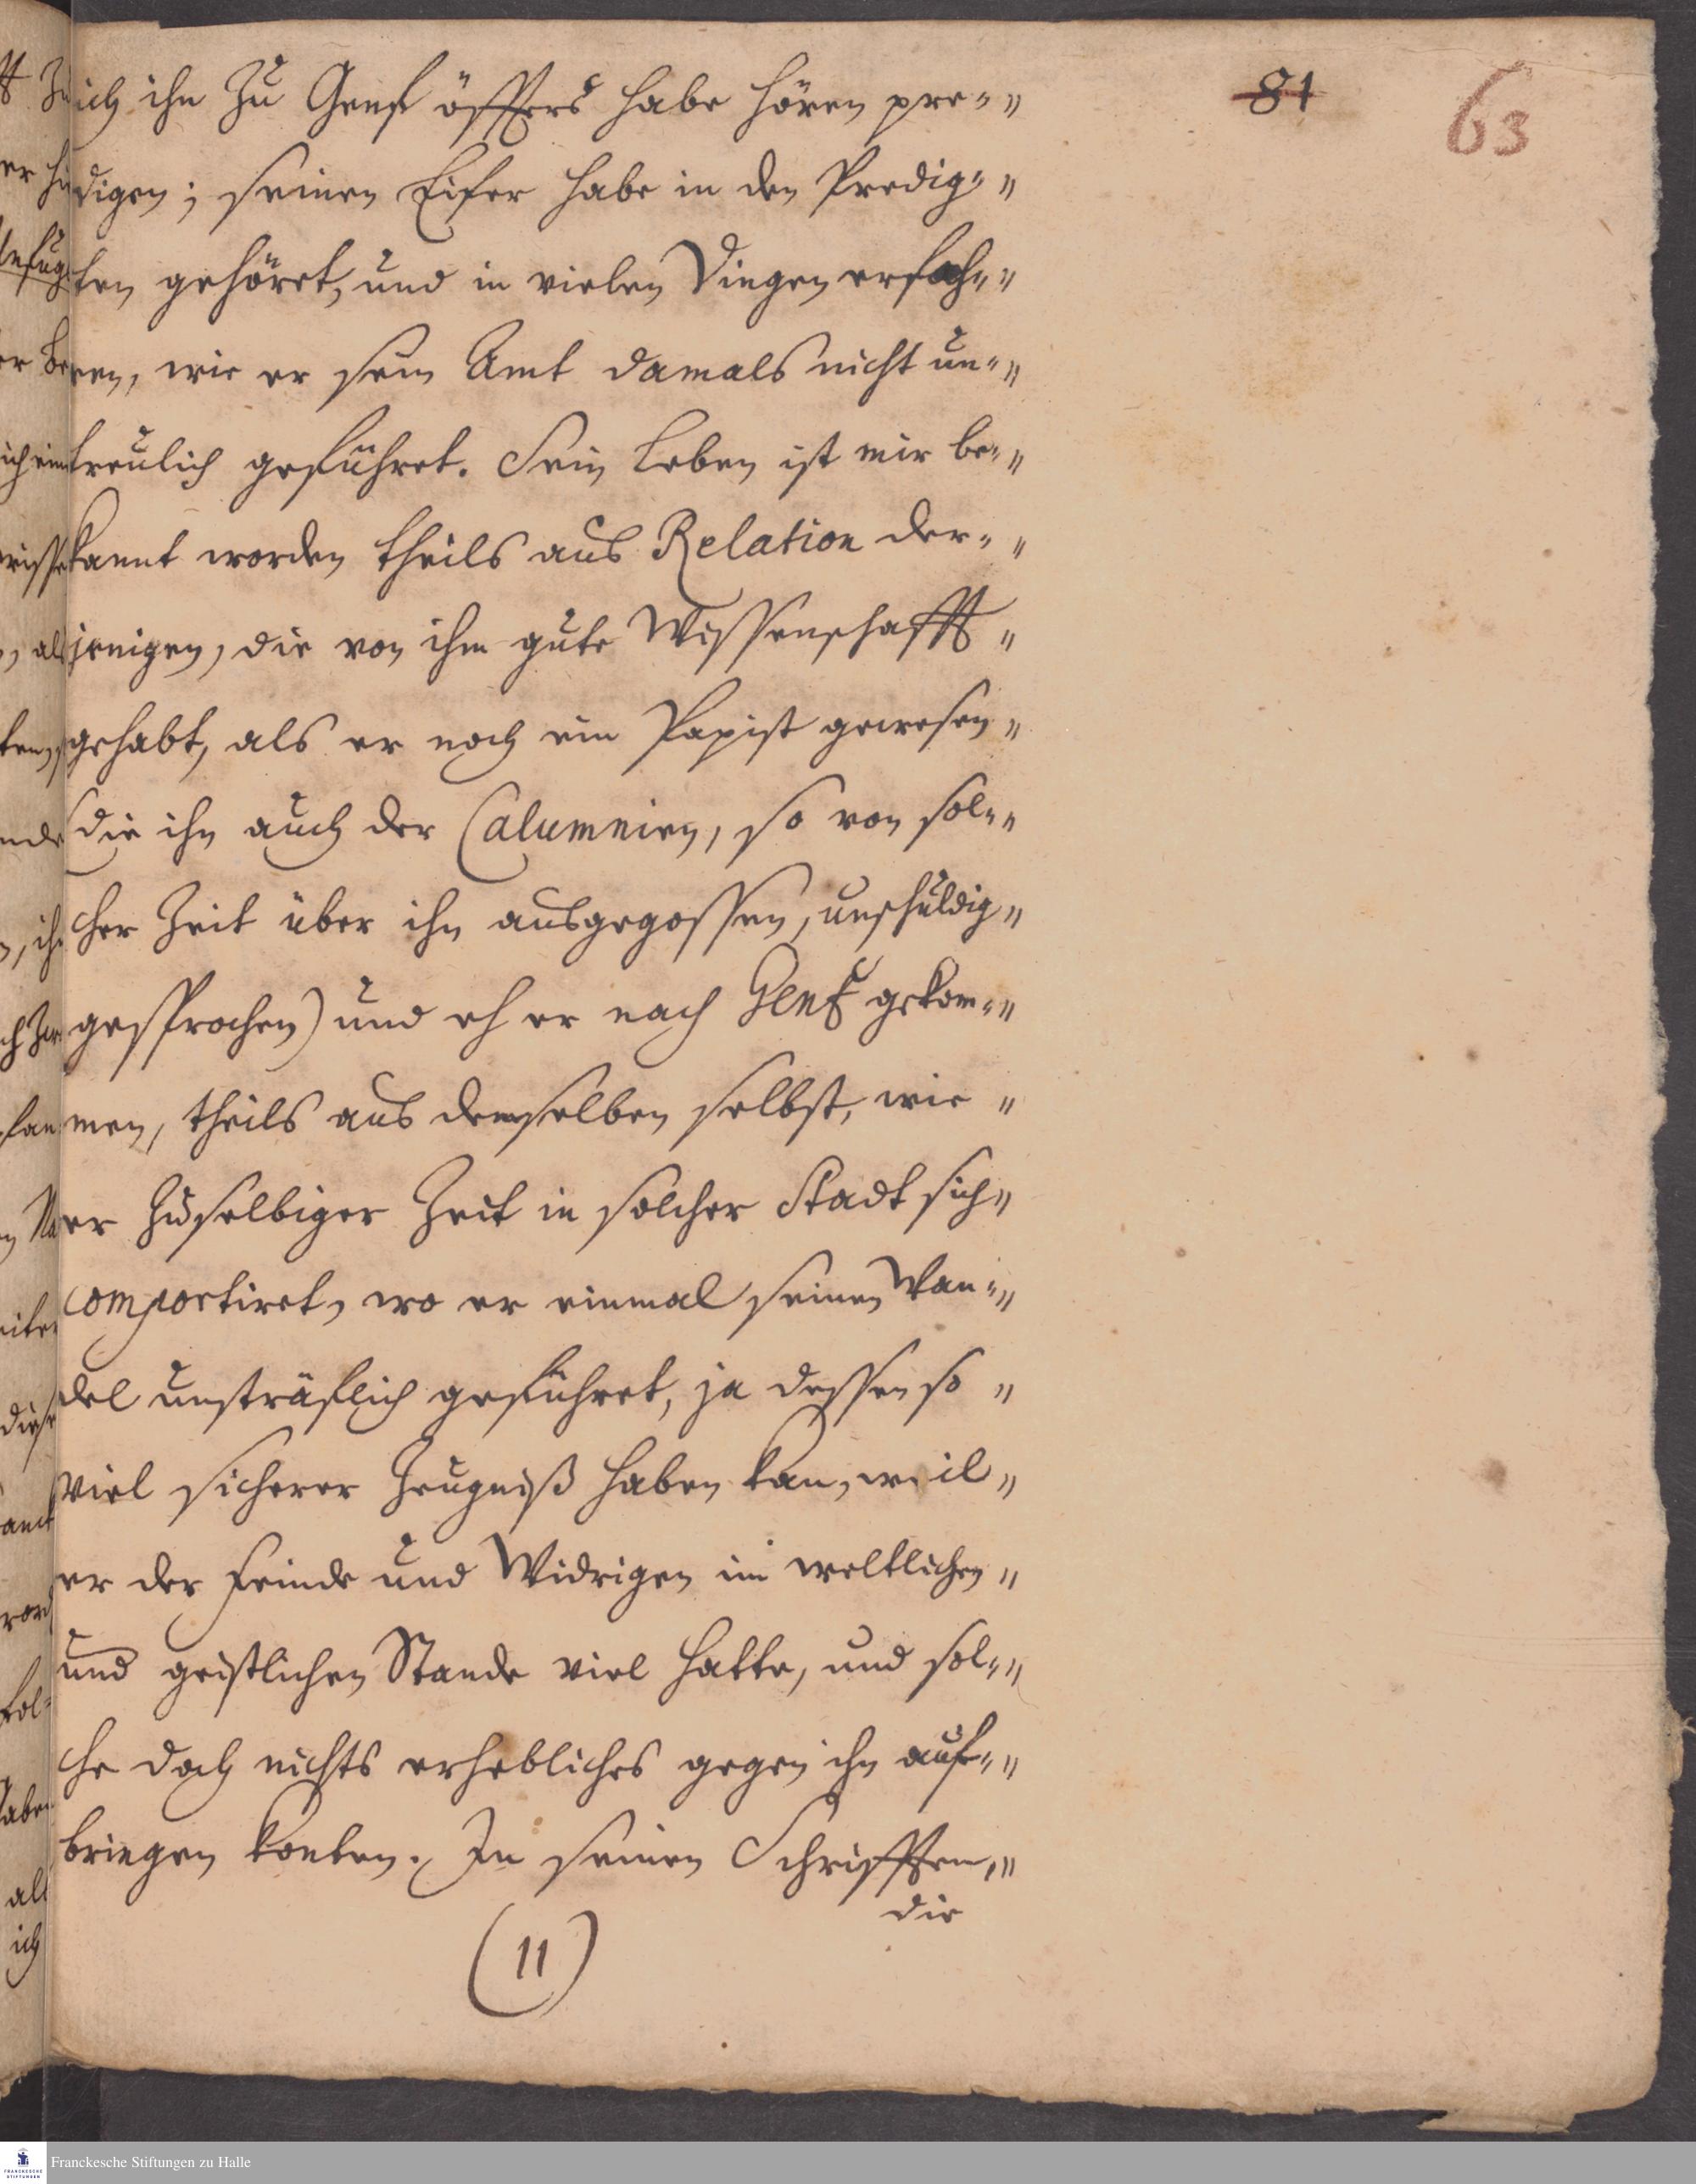 81
63
ich ihn zu Genf öffters habe hören pre- "
digen; seinen Eifer habe in den Predig- "
ten gehöret, und in vielen Dingen erfah- "
ren, wie er sein Amt damals nicht un- "
treulich geführet. Sein Leben ist mir be- "
kannt worden theils aus Relation der- "
jenigen, die von ihm gute Wissenschafft "
gehabt, als er noch ein Papist gewesen "
(die ihn auch der Calumnien, so von sol- "
cher Zeit über ihn ausgegossen, unschuldig "
gesprochen) und eh er nach Genf gekom- "
men, theils aus demselben selbst, wie "
er zu selbiger Zeit in solcher Stadt sich "
comportiret, wo er einmal seinen Wan- "
del unsträflich geführet, ja dessen so "
viel sicherer Zeugniß haben kan, weil "
er der Feinde und Widrigen im weltlichen "
und geistlichen Stande viel hatte, und sol- "
che doch nichts erhebliches gegen ihn auf- "
bringen konten. In seinen Schrifften, "
die
(11)
Franckesche Stiftungen zu Halle